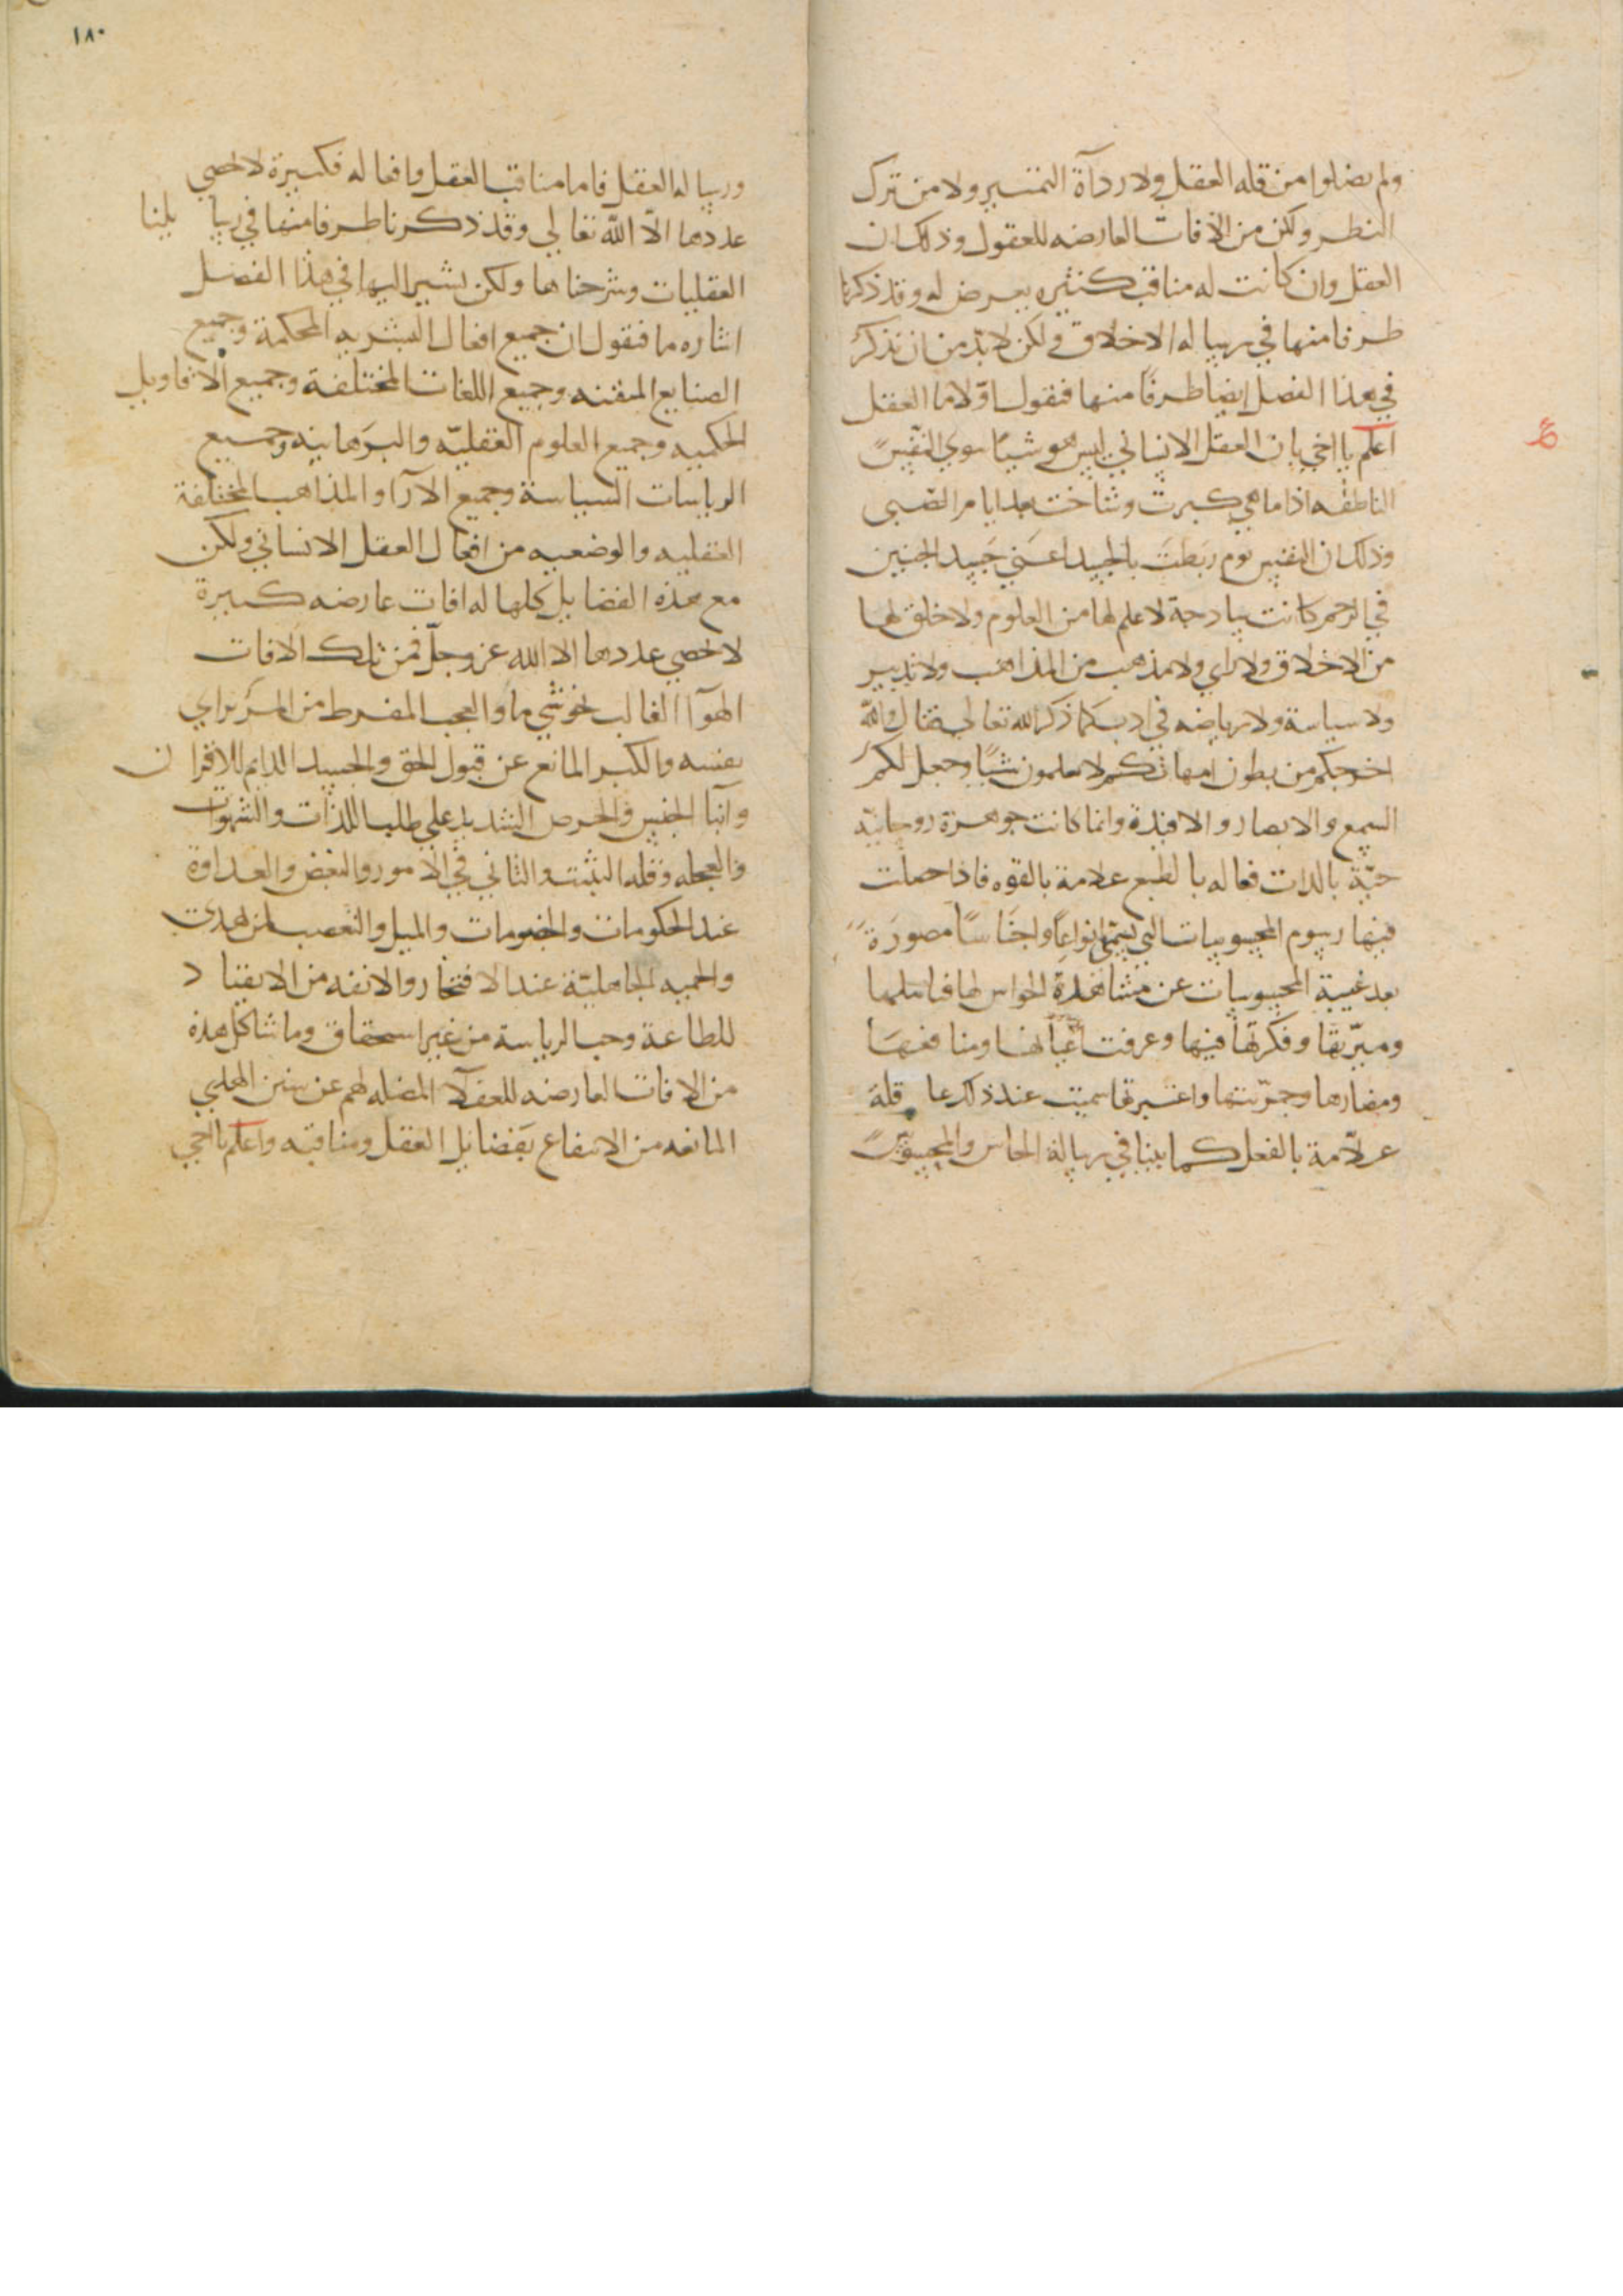 ولم يضلوا من قله العقل ولا رداة التمييز ولا من ترك
النظر ولكن من الافات العارضه للعقول وذلك ان
العقل وان كانت له مناقب كثيره يعرض له وقد ذكرنا
طرفا منها في رسالة الاخلاق ولكن لا بد من ان نذكر
في هذا الفصل ايضا طرفا منها فنقول اولا ما العقل
اعلم يا اخي بان العقل الانساني ليس هو شيا سوي النفس
الناطقه اذا ما هي كبرت وشاخت بعد ايام الصبى
وذلك ان النفس يوم ربطت بالجسد اعني جسد الجنين
في الرحم كانت ساذجة لا علم لها من العلوم ولا خلق لها
من الاخلاق ولا راي ولا مذهب من المذاهب ولا تدبير
ولا سياسة ولا رياضه في ادب كما ذكر الله تعالي فقال والله
اخرجكم من بطون امهاتكم لا تعلمون شيا وجعل لكم
السمع والابصار والافيدة وانما كانت جوهرة روحانية
حية بالذات فعاله بالطبع علامة بالقوه فاذا حصلت
فيها رسوم المحسوسات التي تسمي انواعا واجناسا مصورة
بعد غيبة المحسوسات عن مشاهدة الحواس لها فتاملتها
وميزتها وفكرتها فيها وعرفت اعيانها ومنافعها
ومضارها وجربتها واعتبرتها سميت عند ذلك عاقلة
علامة بالفعل كما بينا في رسالة الحاس والمحسوس
١٨٠
ورسالة العقل فاما مناقب العقل وافعاله فكبيرة لا يحصي
عددها الا الله تعالي وقد ذكرنا طرفا منها في رسايلنا
العقليات وشرحناها ولكن نشير اليها في هذا الفصل
اشاره ما فنقول ان جميع افعال البشريه المحكمة وجميع
الصنايع المتقنه وجميع اللغات المختلفة وجميع الاقاويل
الحكميه وجميع العلوم العقلية والبرهانيه وجميع
الرياسات السياسة وجميع الارا والمذاهب المختلفة
العقليه والوضعيه من افعال العقل الانساني ولكن
مع هذه الفضايل كلها له افات عارضه كبيرة
لا يحصي عددها الا الله عز وجل فمن تلك الافات
الهوآ الغالب نحو شي ما والعجب المفرط من المرء براي
نفسه والكبر المانع عن قبول الحق والحسد الدايم للاقران
وابنا الجنس والحرص الشديد علي طلب اللذات والشهوات
والعجله وقله التثبت والتاني في الامور والبغض والعداوة
عند الحكومات والخصومات والميل والتعصب لمن يهوي
والحميه الجاهلية عند الافتخار والانفه من الانقياد
للطاعة وحب الرياسة من غير استحقاق وما شاكل هذه
من الافات العارضه للعقلا المضله لهم عن سنن الهدي
المانعه من الانتفاع بفضايل العقل ومناقبه واعلم يا اخي